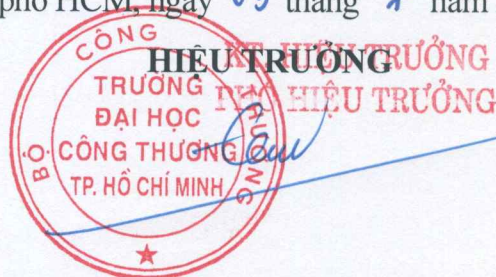 phố HCM, ngày 09 tháng năm
HIỆU TRƯỞNG
KT. HIỆU TRƯỞNG
PHÓ HIỆU TRƯỞNG
BỘ CÔNG THƯƠNG
TRƯỜNG
ĐẠI HỌC
CÔNG THƯƠNG
TP. HỒ CHÍ MINH